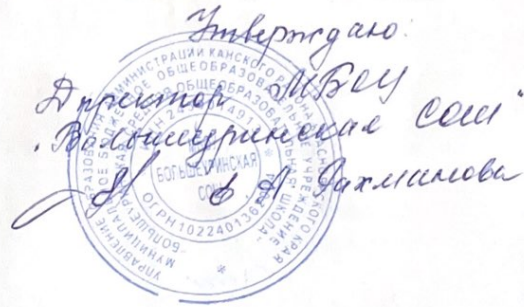 Утверждаю:
Директор МБОУ
"Большеуринская СОШ"
А Рахманова
УПРАВЛЕНИЕ ОБРАЗОВАНИЯ АДМИНИСТРАЦИИ КАНСКОГО РАЙОНА КРАСНОЯРСКОГО КРАЯ
МУНИЦИПАЛЬНОЕ БЮДЖЕТНОЕ ОБЩЕОБРАЗОВАТЕЛЬНОЕ УЧРЕЖДЕНИЕ
ОБЩЕОБРАЗОВАТЕЛЬНАЯ ШКОЛА
БОЛЬШЕУРИНСКАЯ
СОШ